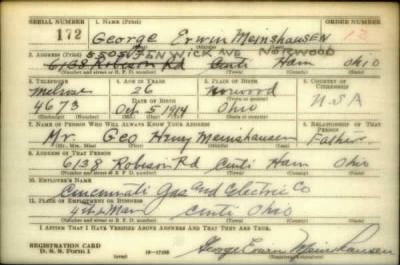 SERIAL NUMBER 1. NAME (Print) ORDER NUMBER
172 George Erwin Meinshausen 13
(First) (Middle) (Last)
2. ADDRESS (Print) FENWICK AVE NORWOOD
6138 Robison Rd Cinti Ham Ohio
(Number and street or R. F. D. number) (Town) (County) (State)
3. TELEPHONE 4. AGE IN YEARS 5. PLACE OF BIRTH 6. COUNTRY OF CITIZENSHIP
Melrose 26 Norwood
4673 DATE OF BIRTH Ohio USA
Oct 5 1914
(Exchange) (Number) (Mo.) (Day) (Yr.) (Town or county) (State or country)
7. NAME OF PERSON WHO WILL ALWAYS KNOW YOUR ADDRESS 8. RELATIONSHIP OF THAT PERSON
Mr. Geo Henry Meinshausen Father
(Mr., Mrs., Miss) (First) (Middle) (Last)
9. ADDRESS OF THAT PERSON
6138 Robison Rd Cinti Ham Ohio
(Number and street or R. F. D. number) (Town) (County) (State)
10. EMPLOYER'S NAME
Cincinnati Gas and Electric Co
11. PLACE OF EMPLOYMENT OR BUSINESS
4th & Main Cinti Ohio
(Number and street or R. F. D. number) (Town) (County) (State)
I AFFIRM THAT I HAVE VERIFIED ABOVE ANSWERS AND THAT THEY ARE TRUE.
REGISTRATION CARD
D. S. S. Form 1 16-17105 George Erwin Meinshausen